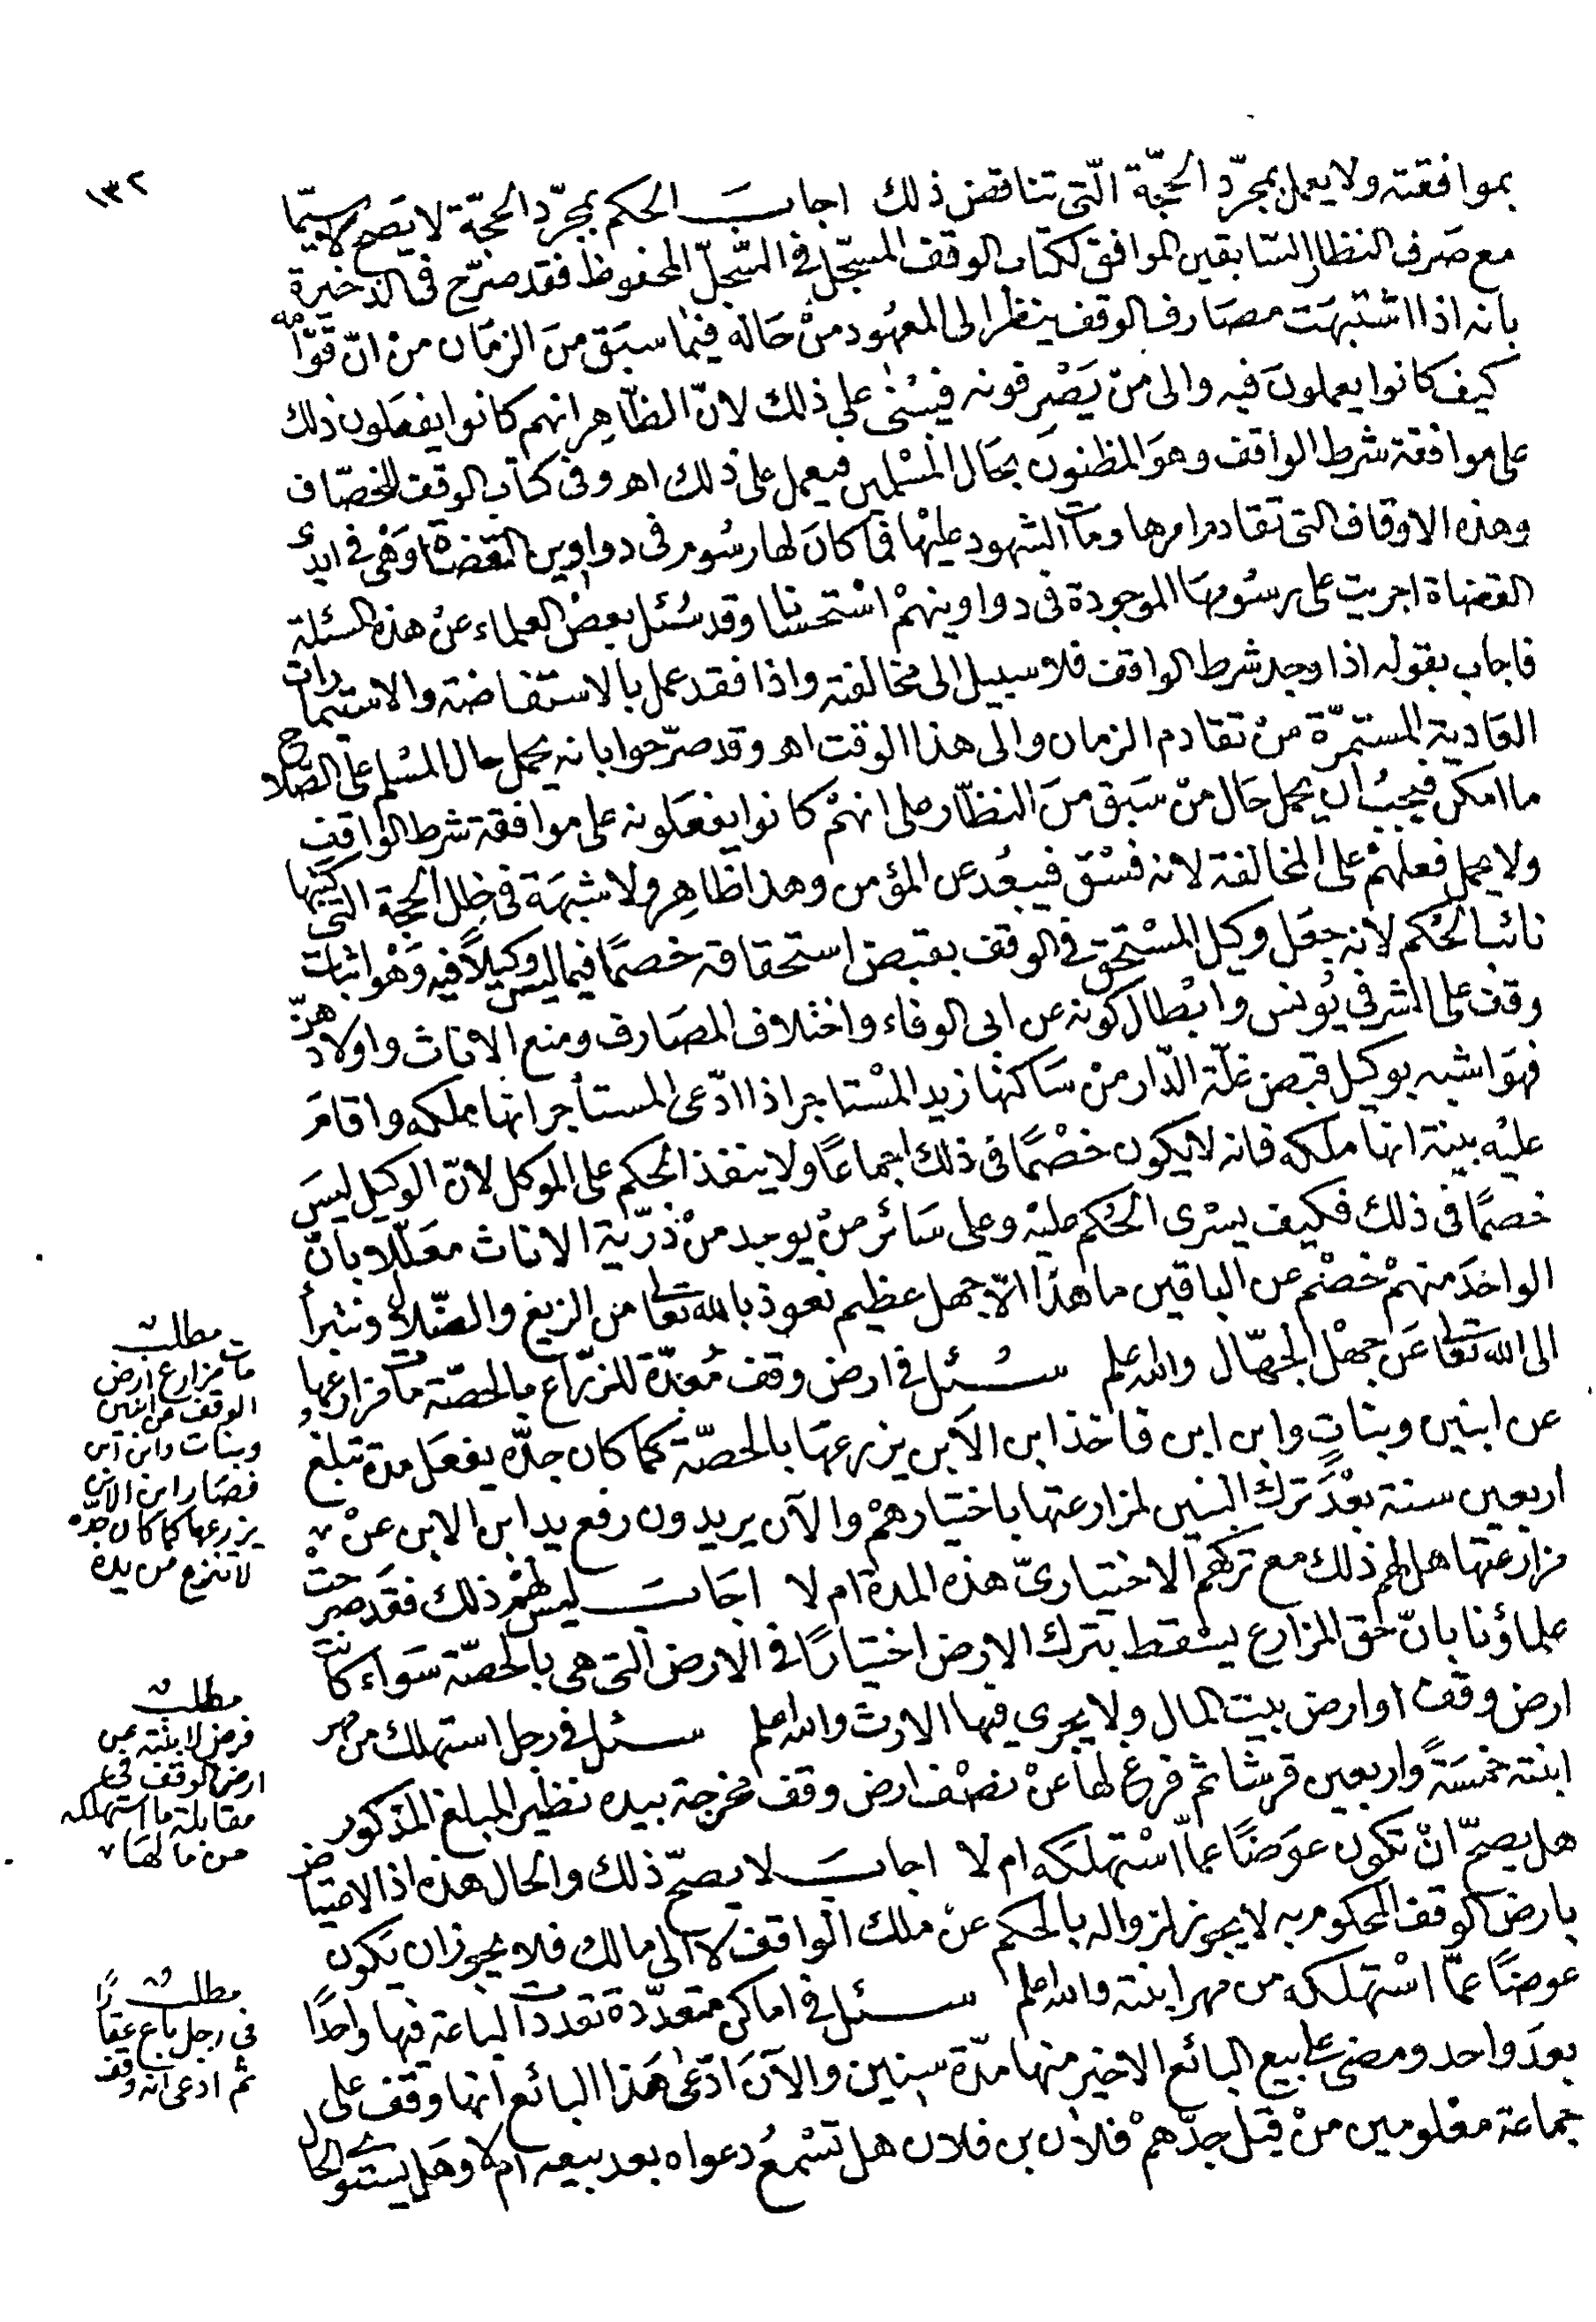 ١٣٢
بموافقته ولا يعمل بمجرّد الحجّة الّتى تناقض ذلك اجابَ الحكم بمجرّد الحجّة لا يَصح لا سيّما
مع صَرف النظار السّابقين الموافق لكتاب الوقف المسجّل فى السّجلّ المحفوظ فقد صرّح فى الذخيرة
بانه اذا اشتبهَت مصَارف الوقف ينظر الى المعهُود منْ حَاله فيمَا سبَق منَ الزمَان من انّ قوّامه
كيف كانوا يعملونَ فيه والى منْ يَصْرفونه فيبْنى على ذلك لانّ الظّاهِر انهم كانوا يفعَلون ذلك
على موافقة شرط الواقف وهوَ المظنونَ بحَال المسْلمين فيعمل على ذلك اهـ وفى كتاب الوقف للخصّاف
وهذه الاوقاف التى تقادم امرها ومات الشهود عليْها فما كانَ لها رسُوم فى دواوين القضاة وَهْى فى ايدى
القضاة اجريت على رسُومهَا الموجودة فى دواوينهمْ اسْتحسَانا وقد سُئل بعضُ العلماء عنْ هذه المسئلة
فاجاب بقوله اذا وجد شرط الواقف فلا سبيل الى مخالفته واذا فقد عمل بالاستفاضة والاستيمارات
العَادية المستمرّة منْ تقادم الزمان والى هذا الوقت اهـ وقد صرّحوا بانه يحمل حال المسْلم على الصّلاح
ما امكن فيجبُ ان يحمل حَال منْ سَبق منَ النظّار على انهمْ كانوا يفعَلونه على موافقة شرط الواقف
ولا يحمل فعلهمْ على المخالفة لانه فسْق فيبعُد عن المؤمن وهذا ظاهِر ولا شبهَة فى خلل الحجة التى كتبها
نائب الحُكم لانه جعَل وكيل المسْتحق فى الوقف بقبض استحقاقه خصمًا فيما ليسَ وكيلاً فيه وَهْو اثبات
وقف على الشرفى يُونس وابْطال كوْنه عن ابى الوفاء واختلاف المصَارف ومنع الاناث واولادهنّ
فهوَ اشبه بوكيل قبض غلّة الدّار منْ سَاكنها زيد المسْتاجر اذا ادّعى المستأجر انها ملكه واقامَ
عليْه بينة انها ملكه فانه لا يكون خصْمًا فى ذلك اجماعًا ولا ينفذ الحكم على الموكل لانّ الوكيل ليسَ
خصمًا فى ذلك فكيف يسْرى الحُكم عليْه وعلى سَائر منْ يوجد منْ ذرّية الاناث معَلّلا بانّ
الواحدَ منهمْ خصْم عن الباقين ما هذا الاّ جهل عظيم نعوذ بالله تعا من الزيغ والضّلال ونتبرأ
الى الله تعا عَن جهْل الجهّال والله علم سُئل فى ارض وقف مُعدّة للزرّاع بالحصّة مات مزارعها
عن ابنين وبناتٍ وابن ابن فاخذ ابن الابن يزرعهَا بالحصّة كما كان جدّه يفعَل مدة تبلغ
اربعين سنة بعْدَ ترك البنين لمزارعتها باختيارهمْ والآن يريدون رفع يد ابن الابن عنْ
مزارعتها هل لهم ذلك مع تركهم الاختيارىّ هذه المدة ام لا اجَابَ ليسَ لهمْ ذلك فقد صرّحتْ
علماؤنا بانّ حق المزارع يسْقط بترك الارض اختيارًا فى الارض التى هى بالحصّة سَواء كانت
ارض وقف او ارض بيت المال ولا يجرى فيها الارث والله علم سئل فى رجل استهلك من مهر
ابنته خمسَةً واربعين قرشا ثم فرغ لها عنْ نصْف ارض وقف مخرجة بيده نظير المبلغ المذكور
هل يصحّ انْ تكون عوَضًا عمّا اسْتهلكه ام لا اجابَ لا يصحّ ذلك والحال هذه اذ الاعتياض
بارض الوقف المحكوم به لا يجوز لزواله بالحكم عنْ ملك الواقف لا الى مالك فلا يجوز ان يكون
عوضًا عمّا اسْتهلكه من مهر ابنته والله علم سئل فى اماكن متعدّدة تعددت الباعة فيها واحدًا
بعدَ واحد ومضى على بيع البائع الاخير منها مدّة سنين والآنَ ادّعى هَذا البائع انها وقف على
جماعة معْلومين منْ قبَل جدّهمْ فلان بن فلان هل تسْمعُ دعواه بعد بيعه ام لا وهَل يستوى الحال
مطلب
مات مزارع ارض
الوقف عن ابنين
وبنات وابن ابن
فصَار ابن الابن
يزرعها كما كان جده
لا تنزع من يده
مطلب
فرض لابنته عن
ارض الوقف فى
مقابلة ما استهلكه
من مالها
مطلب
فى رجل باع عقارًا
ثم ادعى انه وقف